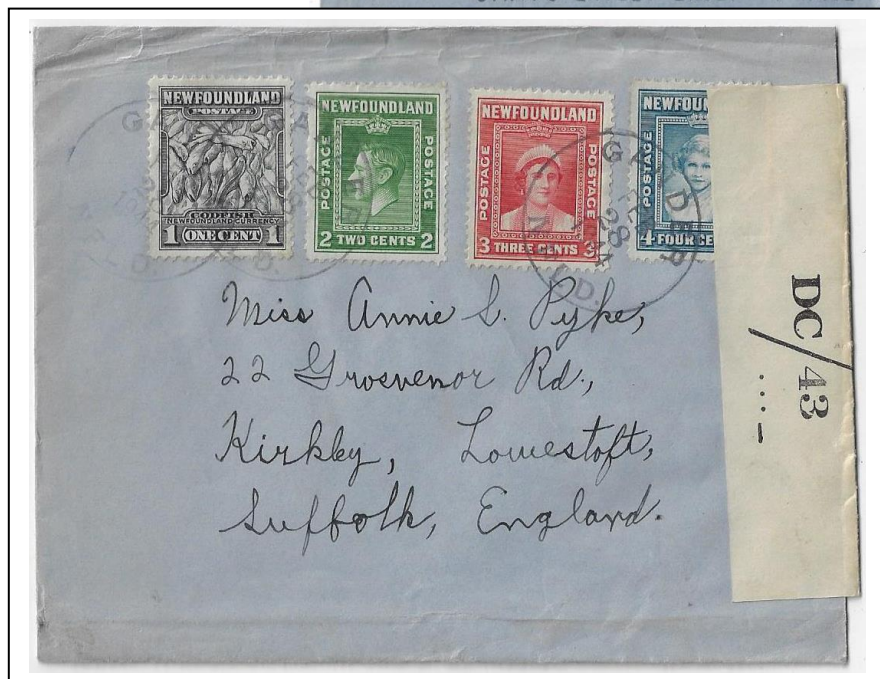 NEWFOUNDLAND
POSTAGE
CODFISH
NEWFOUNDLAND CURRENCY
1 ONE CENT 1
NEWFOUNDLAND
POSTAGE
POSTAGE
2 TWO CENTS 2
NEWFOUNDLAND
POSTAGE
POSTAGE
3 THREE CENTS 3
NEWFOUN
POSTAGE
4 FOUR CE
GANDER
FEB 28
NFLD.
Miss Annie S. Pyke,
22 Grosvenor Rd.,
Kirkley, Lowestoft,
Suffolk, England.
DC/43